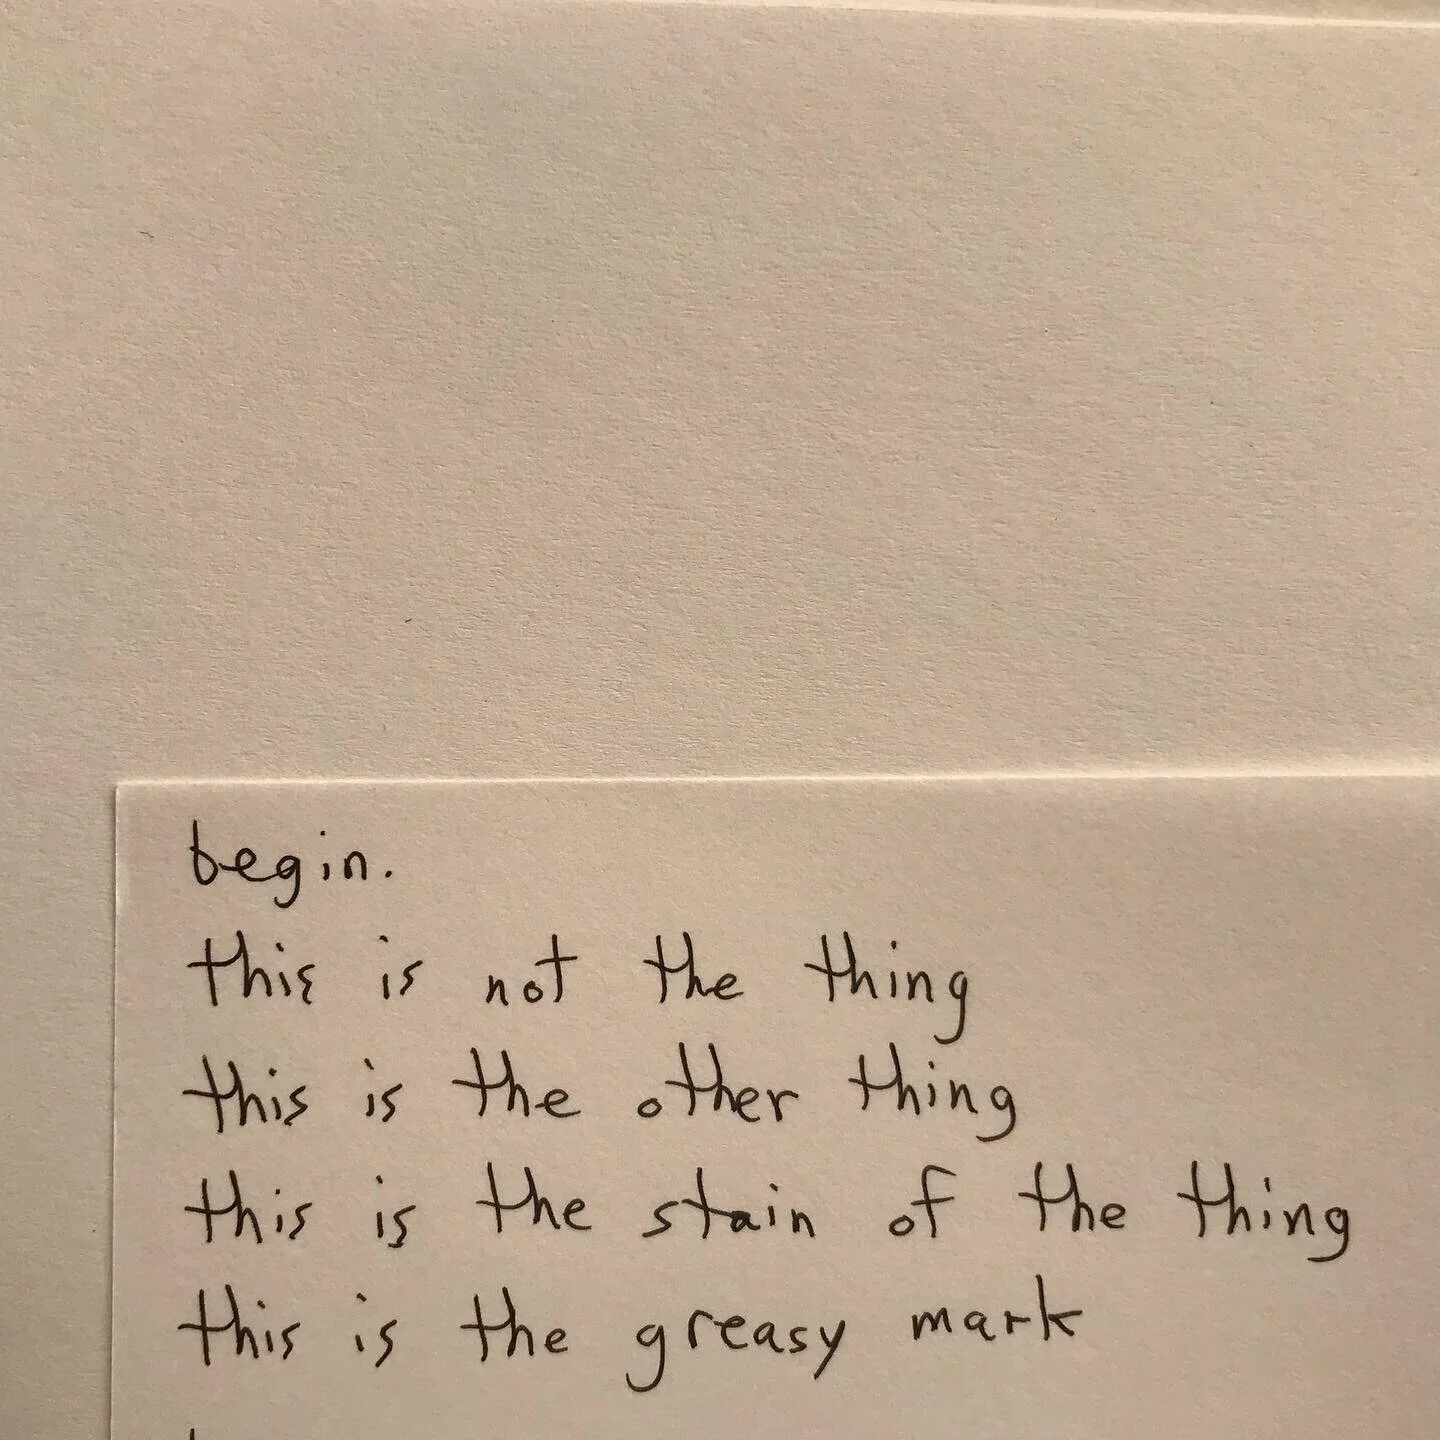 begin.
this is not the thing
this is the other thing
this is the stain of the thing
this is the greasy mark